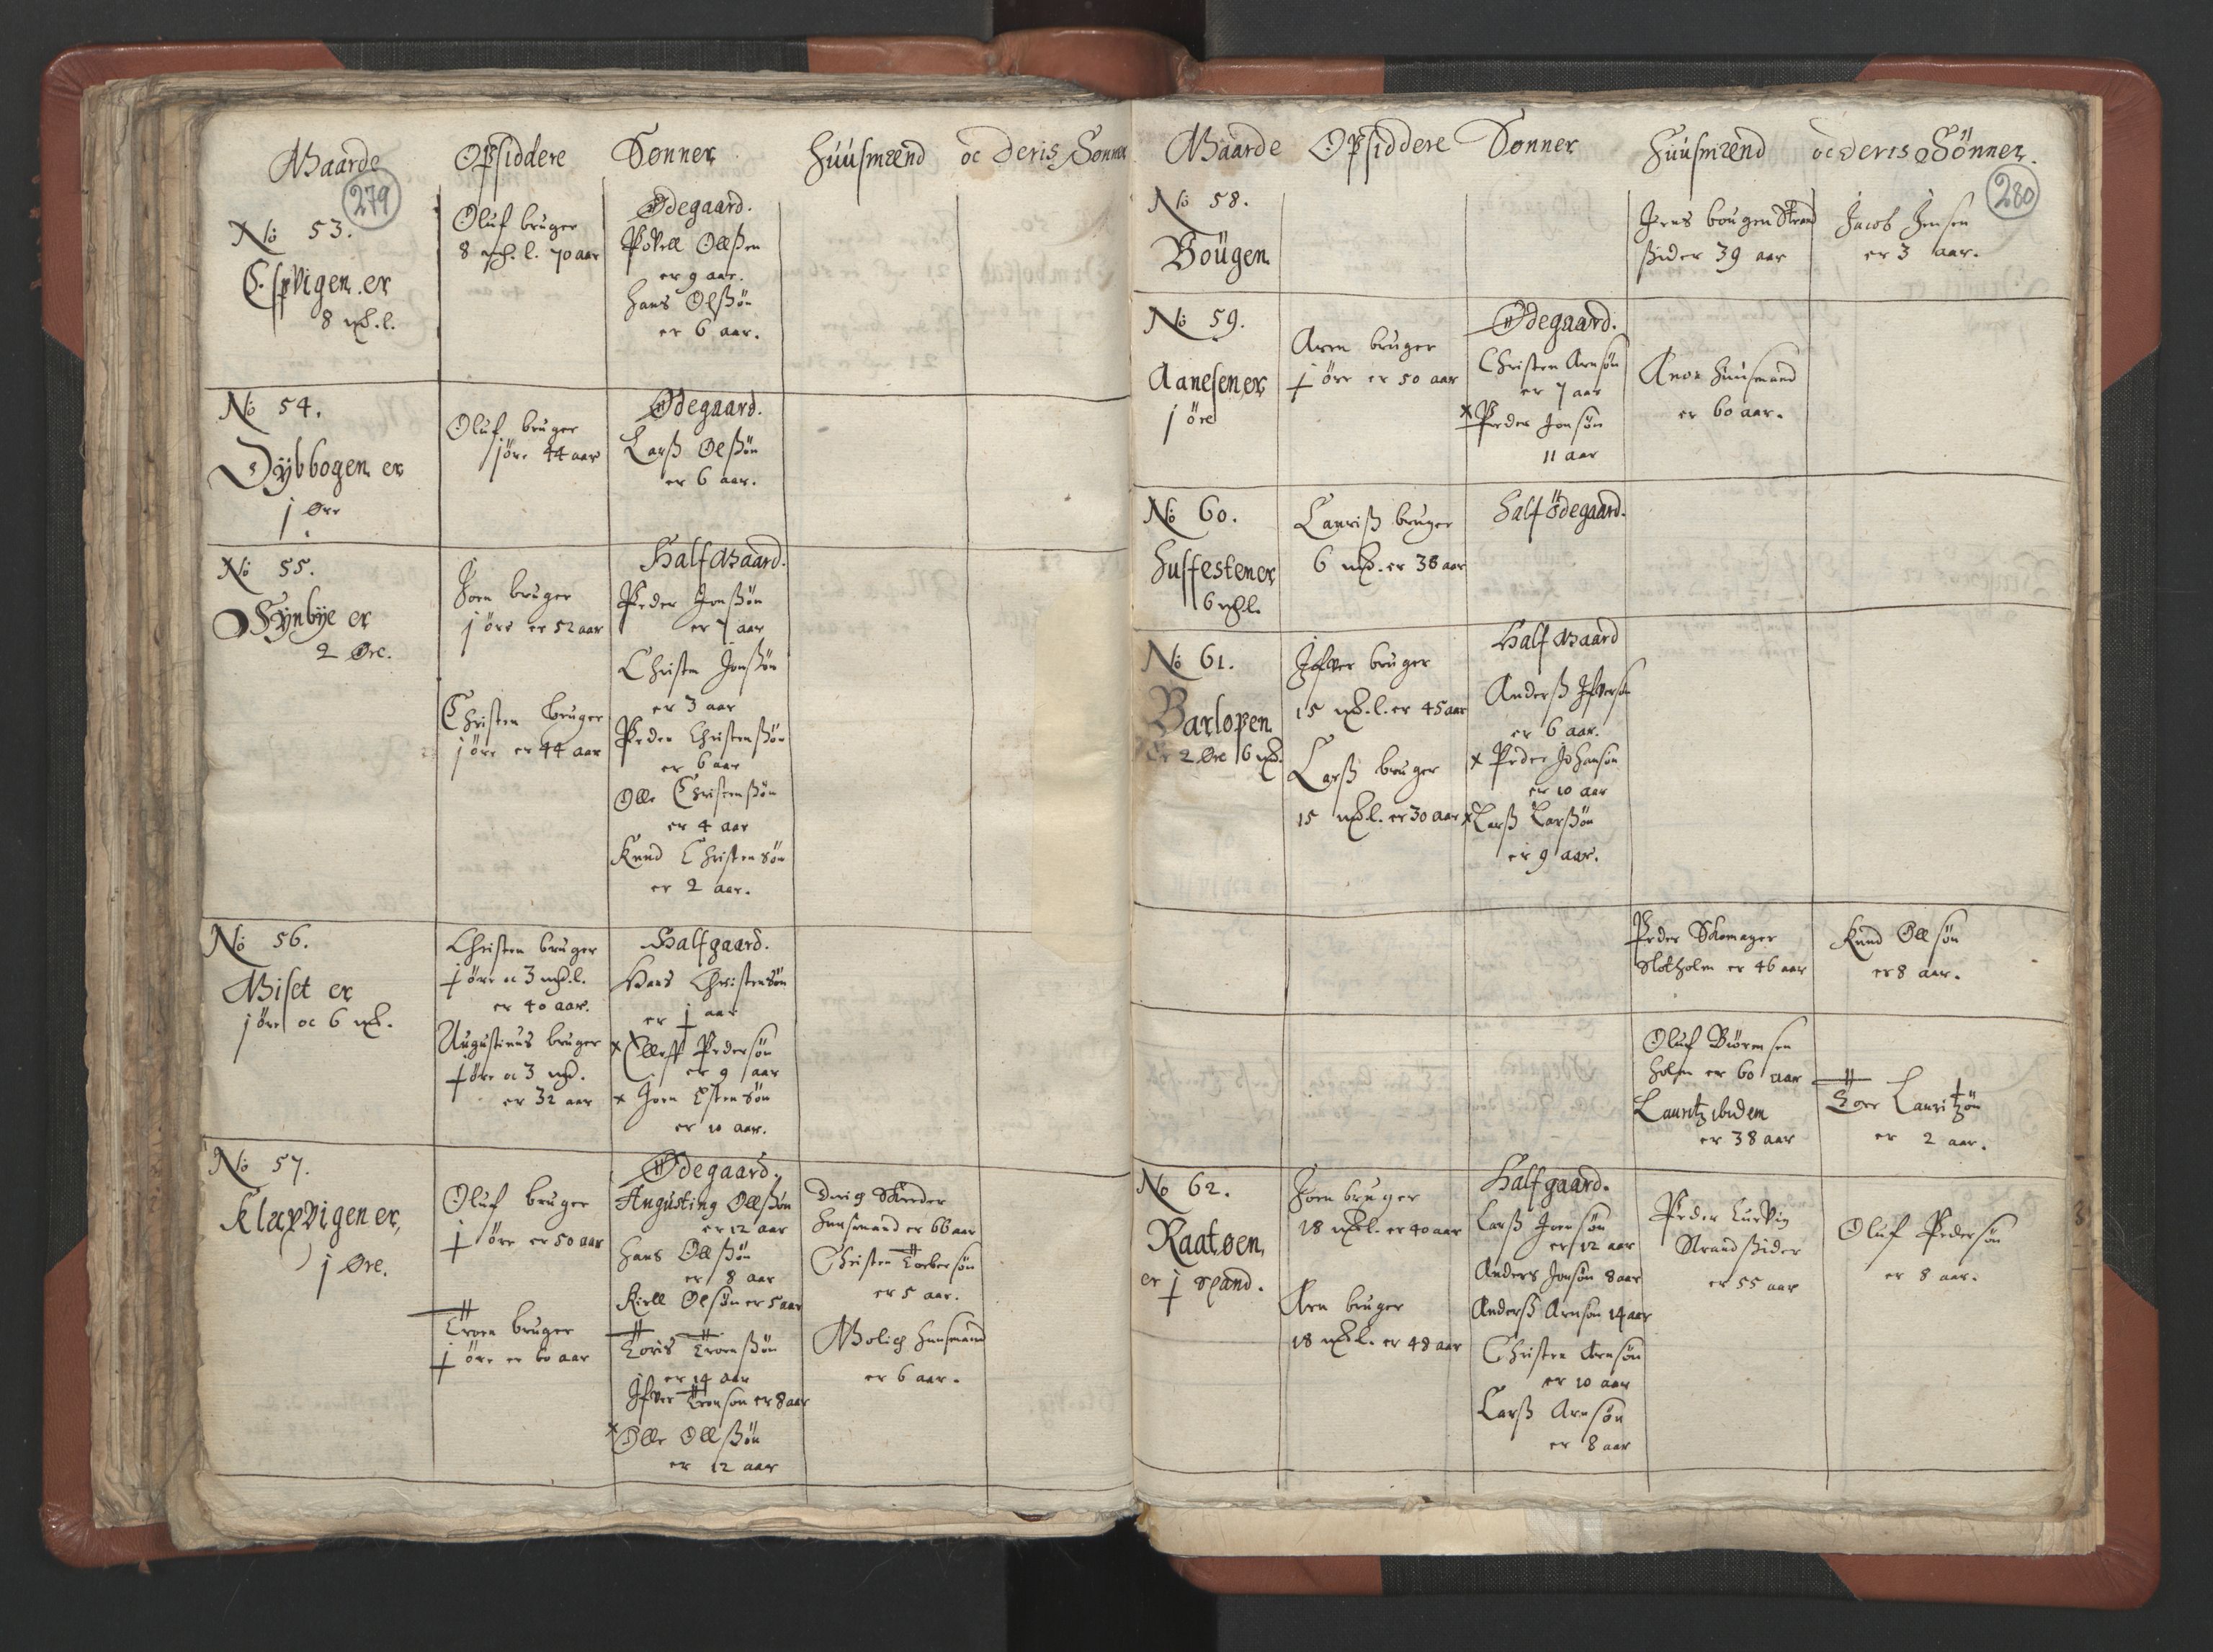 Gaarde Opsiddere Sønner Huusmænd oc Deris Sønner
279
No 53.
Espvigen er
8 mk. l.
Oluf bruger
8 mk. l. 70 aar
Ødegaard.
Povell Olßen
er 9 aar.
Hans Olßøn
er 6 aar.
No 54.
Dybbogen er
1 Øre
Oluf bruger
1 øre 44 aar
Ødegaard.
Larß Olßøn
er 6 aar.
No 55.
Synbye er
2 Øre.
Joen bruger
1 øre er 52 aar
Christen bruger
1 øre er 44 aar
Half Gaard.
Peder Jonßøn
er 7 aar
Christen Jonßøn
er 3 aar
Peder Christenßøn
er 6 aar
Olle Christenßøn
er 4 aar
Knud Christensøn
er 2 aar.
No 56.
Giset er
1 øre oc 6 mk.
Christen bruger
½ øre oc 3 mk. l.
er 40 aar.
Augustinus bruger
½ øre oc 3 mk.
er 32 aar
Halfgaard.
Hans Christensøn
er ½ aar
x Elleff Pedersøn
er 9 aar
x Joen Estensøn
er 10 aar.
No 57.
Klapvigen er,
1 Øre.
Oluf bruger
½ øre er 50 aar
Troen bruger
½ øre er 60 aar
Ødegaard.
Augusting Ollßøn
er 12 aar
Hans Ollßøn
er 8 aar
Kield Olsøn er 5 aar
Toris Troenßøn
er 14 aar
Ifver Tronsøn er 8 aar
x Olle Ollßøn
er 12 aar
Skreder
huusmand er 66 aar
Christen Torbersøn
er 5 aar.
huusmand
er 6 aar.
Gaarde Opsiddere Sønner Huusmænd oc Deris Sønner.
280
No 58.
Bougen
Jens bougen Strand
ßider 39 aar
Jacob Jensen
er 3 aar.
No 59.
Aanesen er
1 øre
Aren bruger
½ øre er 50 aar
Ødegaard.
Christen Arnsøn
er 7 aar
x Peder Jonsøn
11 aar
huusmand
er 60 aar.
No 60.
Huffesten er
6 mk l.
Lauriß bruger
6 mk. er 38 aar
Half Ødegaard.
No 61.
Barlopen
er 2 Øre 6 mk.
Ifver bruger
15 mk. l. er 45 aar
Larß bruger
15 mk l. er 30 aar
Half Gaard
Anderß Ifversøn
er 6 aar.
x Peder Johansøn
er 10 aar
x Larß Larßøn
er 9 aar.
Peder Skomager
Slotholm er 46 aar
Knud Ollsøn
er 8 aar.
Oluf Biørensen
holm er 60 aar
Lauritz ibidem
er 38 aar
Tore Lauritzøn
er 2 aar.
No 62.
Raatøen,
er ½ spand.
Joen bruger
18 mk l. er 40 aar
Aren bruger
18 mk l. er 48 aar
Halfgaard.
Larß Joensøn
er 12 aar
Anders Jonsøn 8 aar
Anderß Arnsøn 14 aar
Christen Arnsøn
er 10 aar
Larß Arnsøn
er 8 aar
Peder Kurvig
Strandßider
er 55 aar
Oluf Pedersøn
er 8 aar.